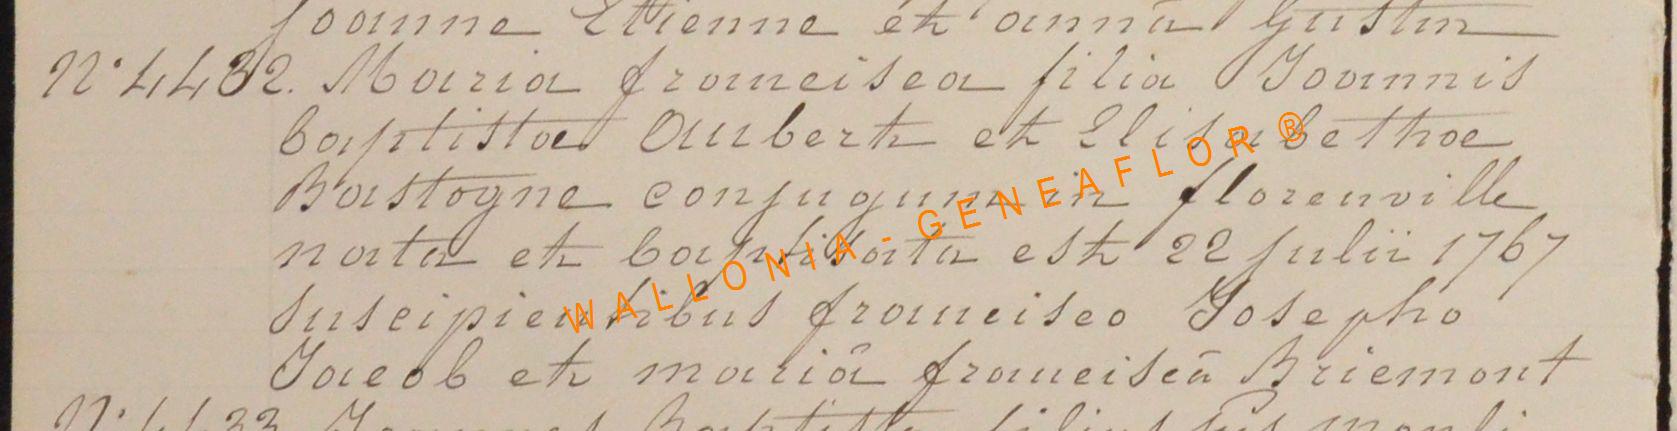 Joanne Etienne et annâ Gustin
N° 4432. Maria francisca filia Joannis
baptistae Aubert et Elisabethae
Bastogne conjugum in florenville
nata et baptisata est 22 julii 1767
suscipientibus francisco Josepho
Jacob et mariâ franciscâ Briemont
N° 4433 Joannes Baptista filius
WALLONIA-GENEAFLOR®